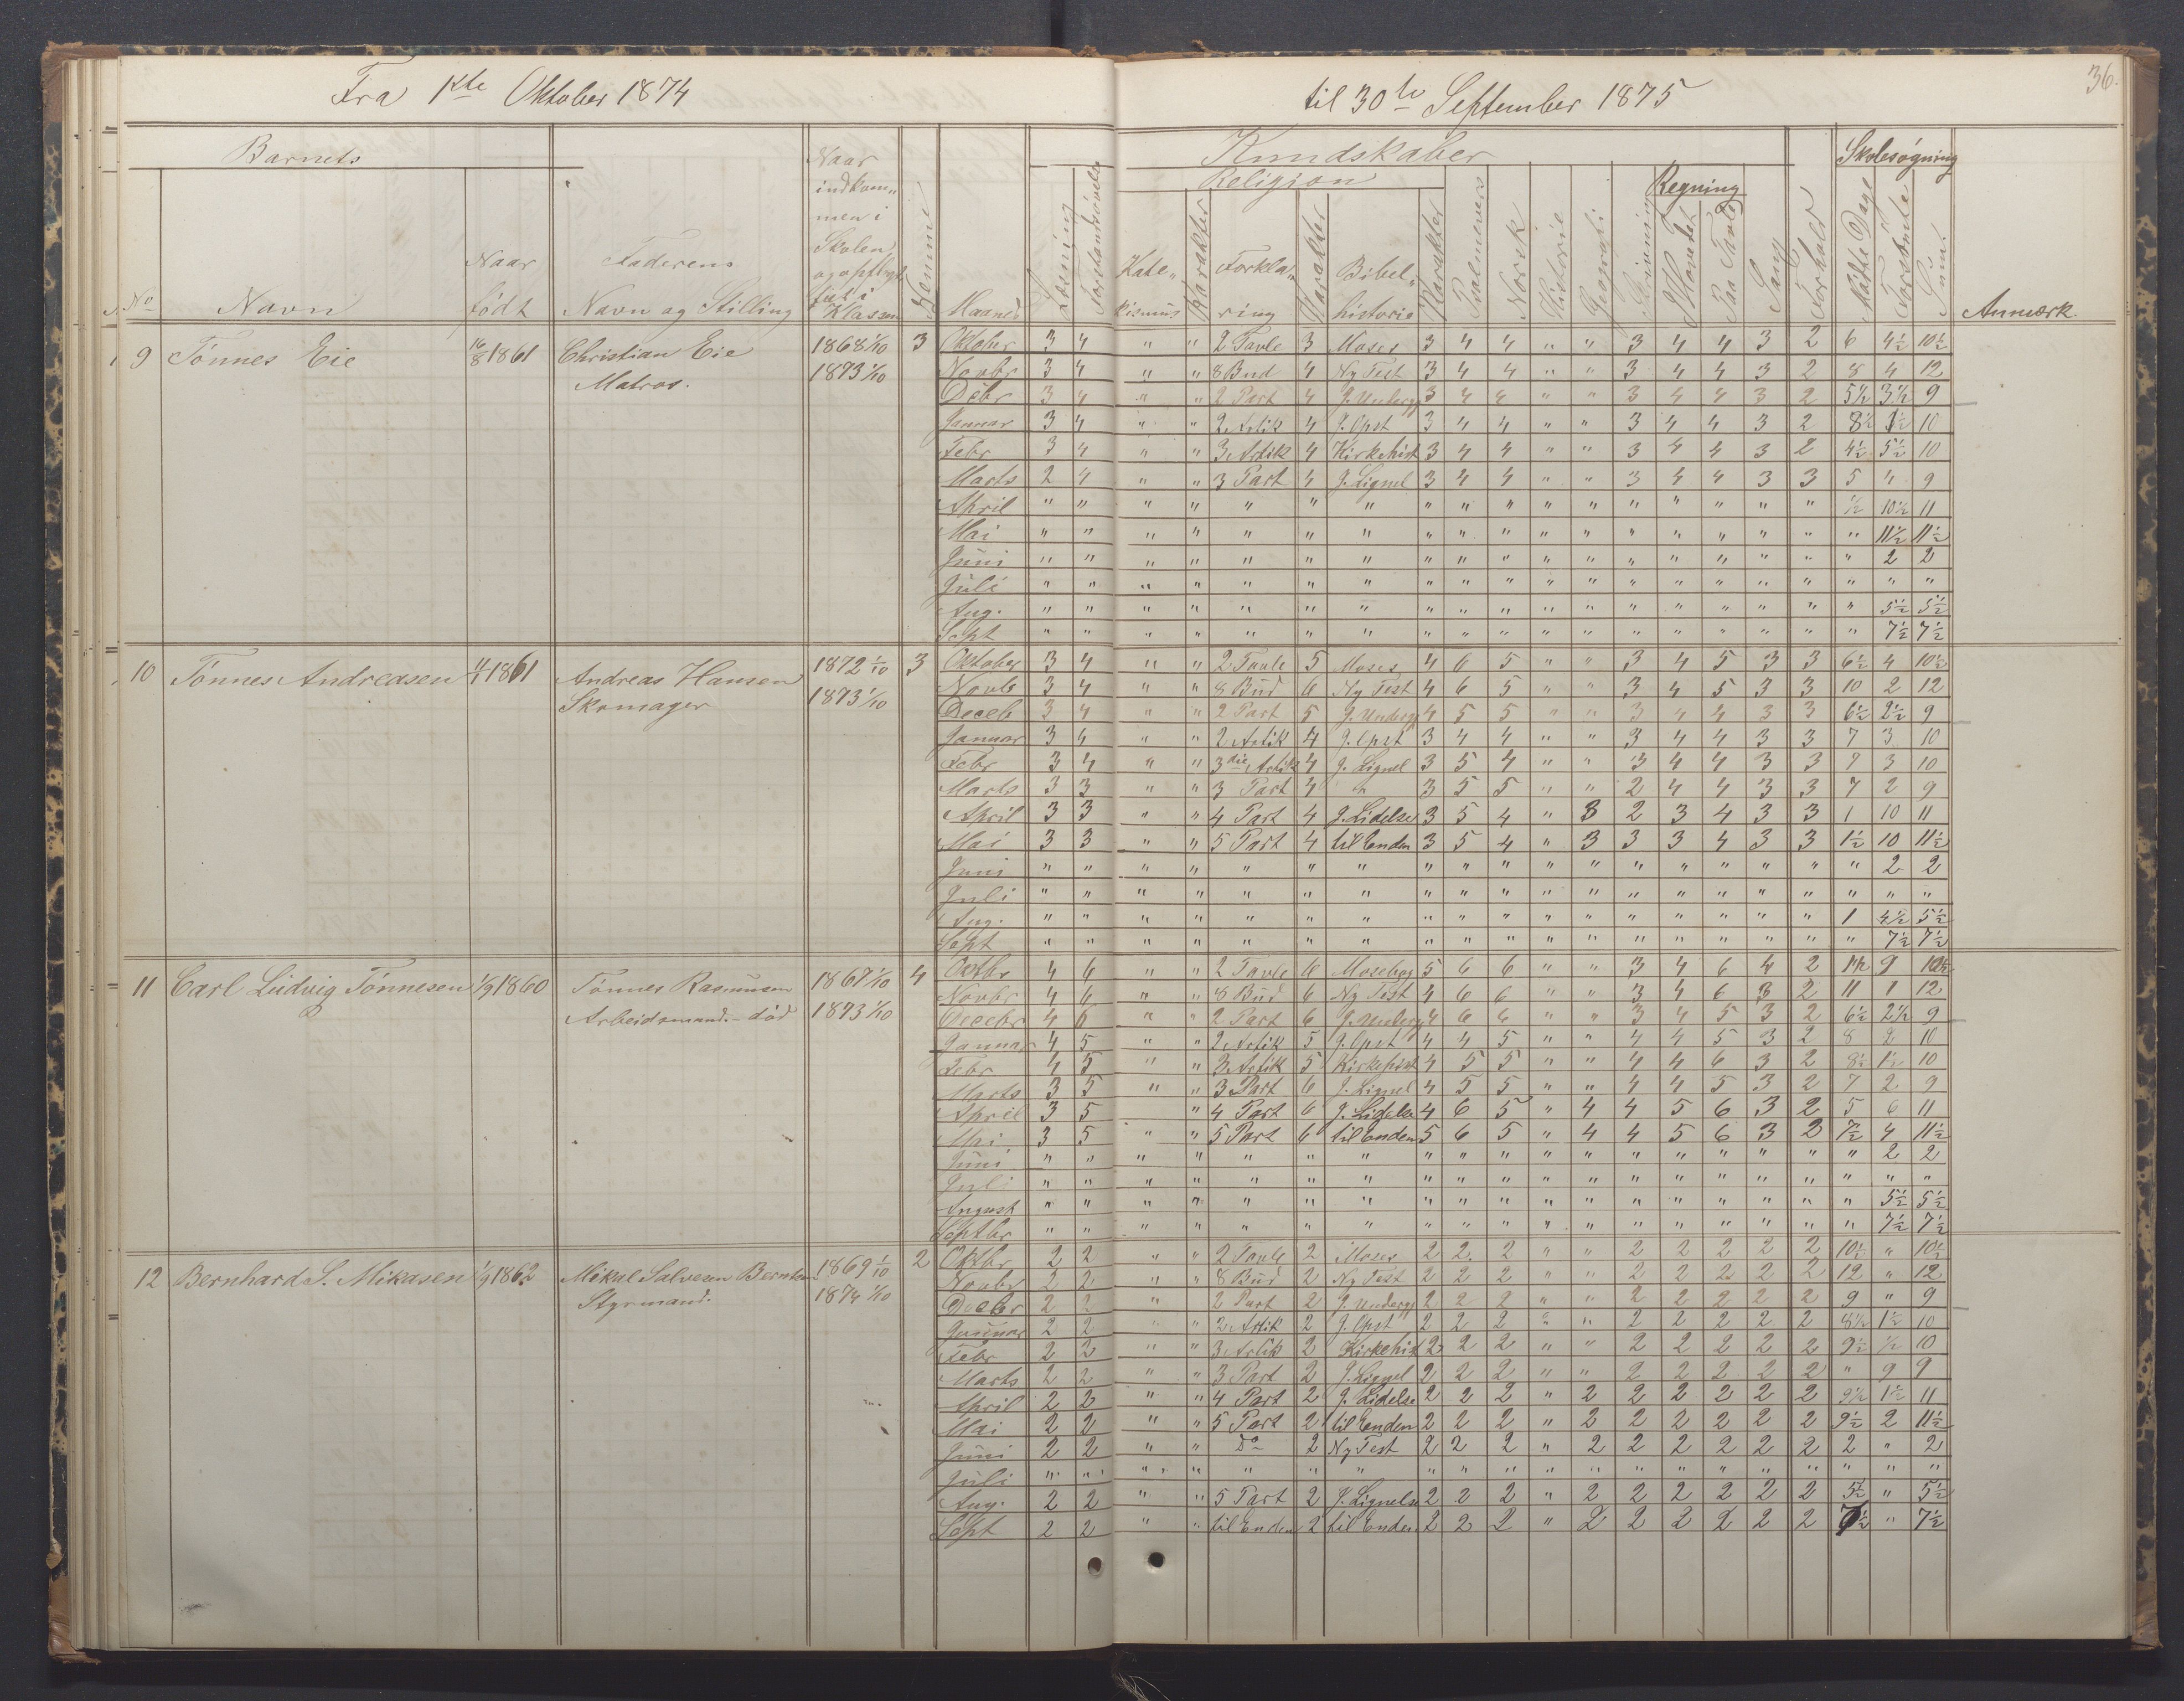 Fra 1ste Oktober 1874 til 30te September 1875
36.
Barnets
Kundskaber
Skolesøgning
Religion
Regning
No Navn Naar født Faderens Navn og Stilling Naar indkommen i Skolen og opflyttet i Klassen Evne Maaned Læsning Forstandsøvelse Katekismus Karakter Forklaring Karakter Bibelhistorie Karakter Psalmevers Norsk Historie Geografi Skrivning I Hovedet Paa Tavle Sang Forhold Mødte Dage Forsømte Sum Anmærk.
9 Tønnes Eie 16/8 1861 Christian Eie 1868 1/10 3 Oktober 3 4 " " 2 Tavle 3 Moses 3 4 4 " " 3 4 4 3 2 6 4½ 10½
Matros. 1873 1/10 Novbr 3 4 " " 8 Bud 4 Ny Test 3 4 4 " " 3 4 4 3 2 8 4 12
Debr 3 4 " " 2 Part 4 J. Undergj 3 4 4 " " 3 4 4 3 2 5½ 3½ 9
Januar 3 4 " " 2 Artik 4 J. Opst 3 4 4 " " 3 4 4 3 2 8½ 1½ 10
Febr 3 4 " " 3 Artik 4 Kirkehist 3 4 4 " " 3 4 4 3 2 4½ 5½ 10
Marts 2 4 " " 3 Part 4 J. Lignel 3 4 4 " " 3 4 4 3 3 5 4 9
April " " " " " " " " " " " " " " " " " ½ 10½ 11
Mai " " " " " " " " " " " " " " " " " " 11½ 11½
Juni " " " " " " " " " " " " " " " " " " 2 2
Juli " " " " " " " " " " " " " " " " " " " "
Aug. " " " " " " " " " " " " " " " " " " 5½ 5½
Sept " " " " " " " " " " " " " " " " " " 7½ 7½
10 Tønnes Andreasen 4/1 1861 Andreas Hansen 1872 1/10 3 Oktober 3 4 " " 2 Tavle 5 Moses 4 6 5 " " 3 4 5 3 3 6½ 4 10½
Skomager 1873 1/10 Novb 3 4 " " 8 Bud 6 Ny Test 4 6 5 " " 3 4 5 3 3 10 2 12
Deceb 3 4 " " 2 Part 5 J. Undergj 4 5 5 " " 3 4 4 3 3 6½ 2½ 9
Januar 3 4 " " 2 Artik 4 J. Opst 3 4 4 " " 3 4 4 3 3 7 3 10
Febr 3 4 " " 3die Artik 4 J. Lignel 3 5 4 " " 3 4 4 3 3 7 3 10
Marts 3 3 " " 3 Part 4 " 3 5 5 " " 2 4 4 3 3 7 2 9
April 3 3 " " 4 Part 4 J. Lidelse 3 5 4 " 3 2 3 4 3 3 1 10 11
Mai 3 3 " " 5 Part 4 til Enden 3 5 4 " 3 3 3 4 3 3 1½ 10 11½
Juni " " " " " " " " " " " " " " " " " " 2 2
Juli " " " " " " " " " " " " " " " " " " " "
Aug. " " " " " " " " " " " " " " " " " 1 4½ 5½
Sept " " " " " " " " " " " " " " " " " " 7½ 7½
11 Carl Ludvig Tønnesen 1/9 1860 Tønnes Rasmussen 1867 1/10 4 Octbr 4 6 " " 2 Tavle 6 Mosebog 5 6 6 " " 3 4 6 4 2 1½ 9 10½
Arbeidsmand. - død 1873 1/10 Novbr 4 6 " " 8 Bud 6 Ny Test 4 6 6 " " 3 4 6 3 2 11 1 12
Decebr 4 6 " " 2 Part 6 J. Undergj 4 6 6 " " 3 4 5 3 2 6½ 2½ 9
Januar 4 5 " " 2 Artik 5 J. Opst 4 4 5 " " 4 4 5 3 2 8 2 10
Febr 4 5 " " 3 Artik 5 Kirkehist 4 5 5 " " 4 4 6 3 2 8½ 1½ 10
Marts 3 5 " " 3 Part 6 J. Lignel 4 5 5 " " 4 4 5 3 2 7 2 9
April 3 5 " 4 Part 6 J. Lidelse 4 6 5 " 4 4 5 6 3 2 5 6 11
Mai 3 5 " " 5 Part 6 til Enden 5 6 5 " 4 4 5 6 3 2 7½ 4 11½
Juni " " " " " " " " " " " " " " " " " " 2 2
Juli " " " " " " " " " " " " " " " " " " " "
August " " " " " " " " " " " " " " " " " " 5½ 5½
Septbr " " " " " " " " " " " " " " " " " " 7½ 7½
12 Bernhard S. Mikasen 1/9 1862 Mikal Salvesen Berntsen 1869 1/10 2 Oktbr 2 2 " " 2 Tavle 2 Moses 2 2 2 " " 2 2 2 2 2 10½ " 10½
Styrmand. 1874 1/10 Novbr 2 2 " " 8 Bud 2 Ny Test 2 2 2 " " 2 2 2 2 2 12 " 12
Decbr 2 2 " 2 Part 2 J. Undergj 2 2 2 " " 2 2 2 2 2 9 " 9
Januar 2 2 " " 2 Artik 2 J. Opst 2 2 2 " " 2 2 2 2 2 8½ 1½ 10
Febr 2 2 " " 3 Artik 2 Kirkehist 2 2 2 " " 2 2 2 2 2 9½ ½ 10
Marts 2 2 " " 3 Part 2 J. Lignel 2 2 2 " " 2 2 2 2 2 " 9 9
April 2 2 " " 4 Part 2 J. Lidelse 2 2 2 " 2 2 2 2 2 2 9½ 1½ 11
Mai 2 2 " " 5 Part 2 til Enden 2 2 2 " 2 2 2 2 2 2 9½ 2 11½
Juni 2 2 " " Do 2 Ny Test 2 2 2 " 2 2 2 2 2 2 2 " 2
Juli " " " " " " " " " " " " " " " " " " " "
Aug. 2 2 " " 5 Part 2 J. Lignelse 2 2 2 " 2 2 2 2 2 2 5½ " 5½
Sept 2 2 " " til Enden 2 til Enden 2 2 2 " 2 2 2 2 2 2 7½ " 7½